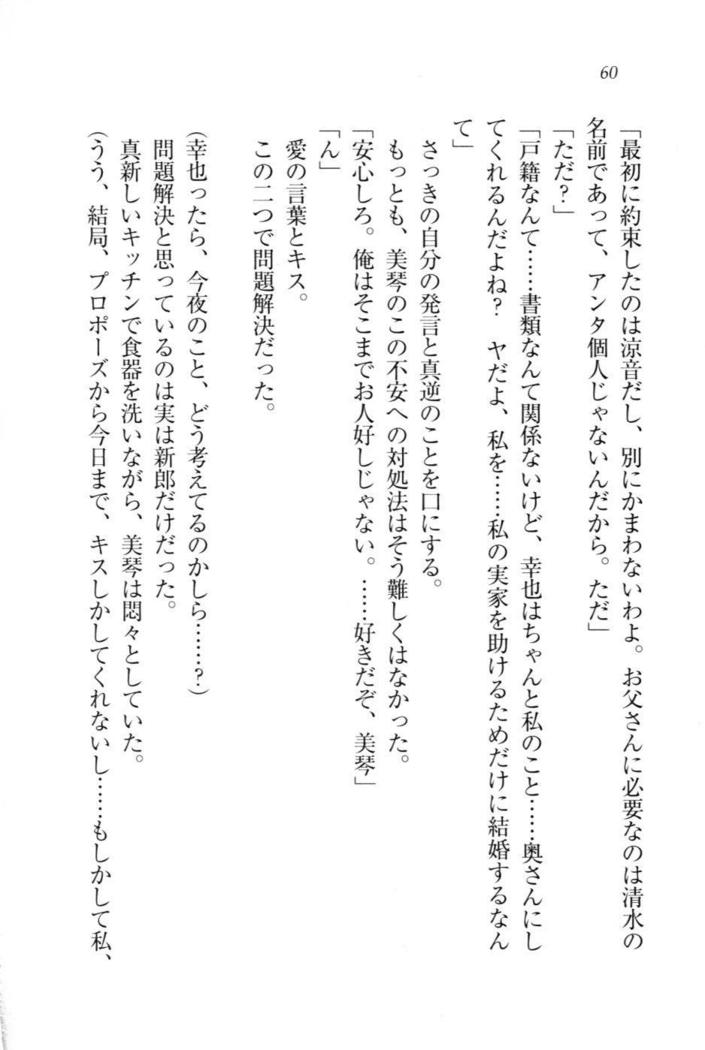 60
「最初に約束したのは涼音だし、別にかまわないわよ。お父さんに必要なのは清水の
名前であって、アンタ個人じゃないんだから。ただ」
「ただ？」
「戸籍なんて……書類なんて関係ないけど、幸也はちゃんと私のこと……奥さんにし
てくれるんだよね？　ヤだよ、私を……私の実家を助けるためだけに結婚するなん
て」
　さっきの自分の発言と真逆のことを口にする。
　もっとも、美琴のこの不安への対処法はそう難しくはなかった。
「安心しろ。俺はそこまでお人好しじゃない。……好きだぞ、美琴」
「ん」
　愛の言葉とキス。
　この二つで問題解決だった。
（幸也ったら、今夜のこと、どう考えてるのかしら……？）
　問題解決と思っているのは実は新郎だけだった。
　真新しいキッチンで食器を洗いながら、美琴は悶々としていた。
（うう、結局、プロポーズから今日まで、キスしかしてくれないし……もしかして私、